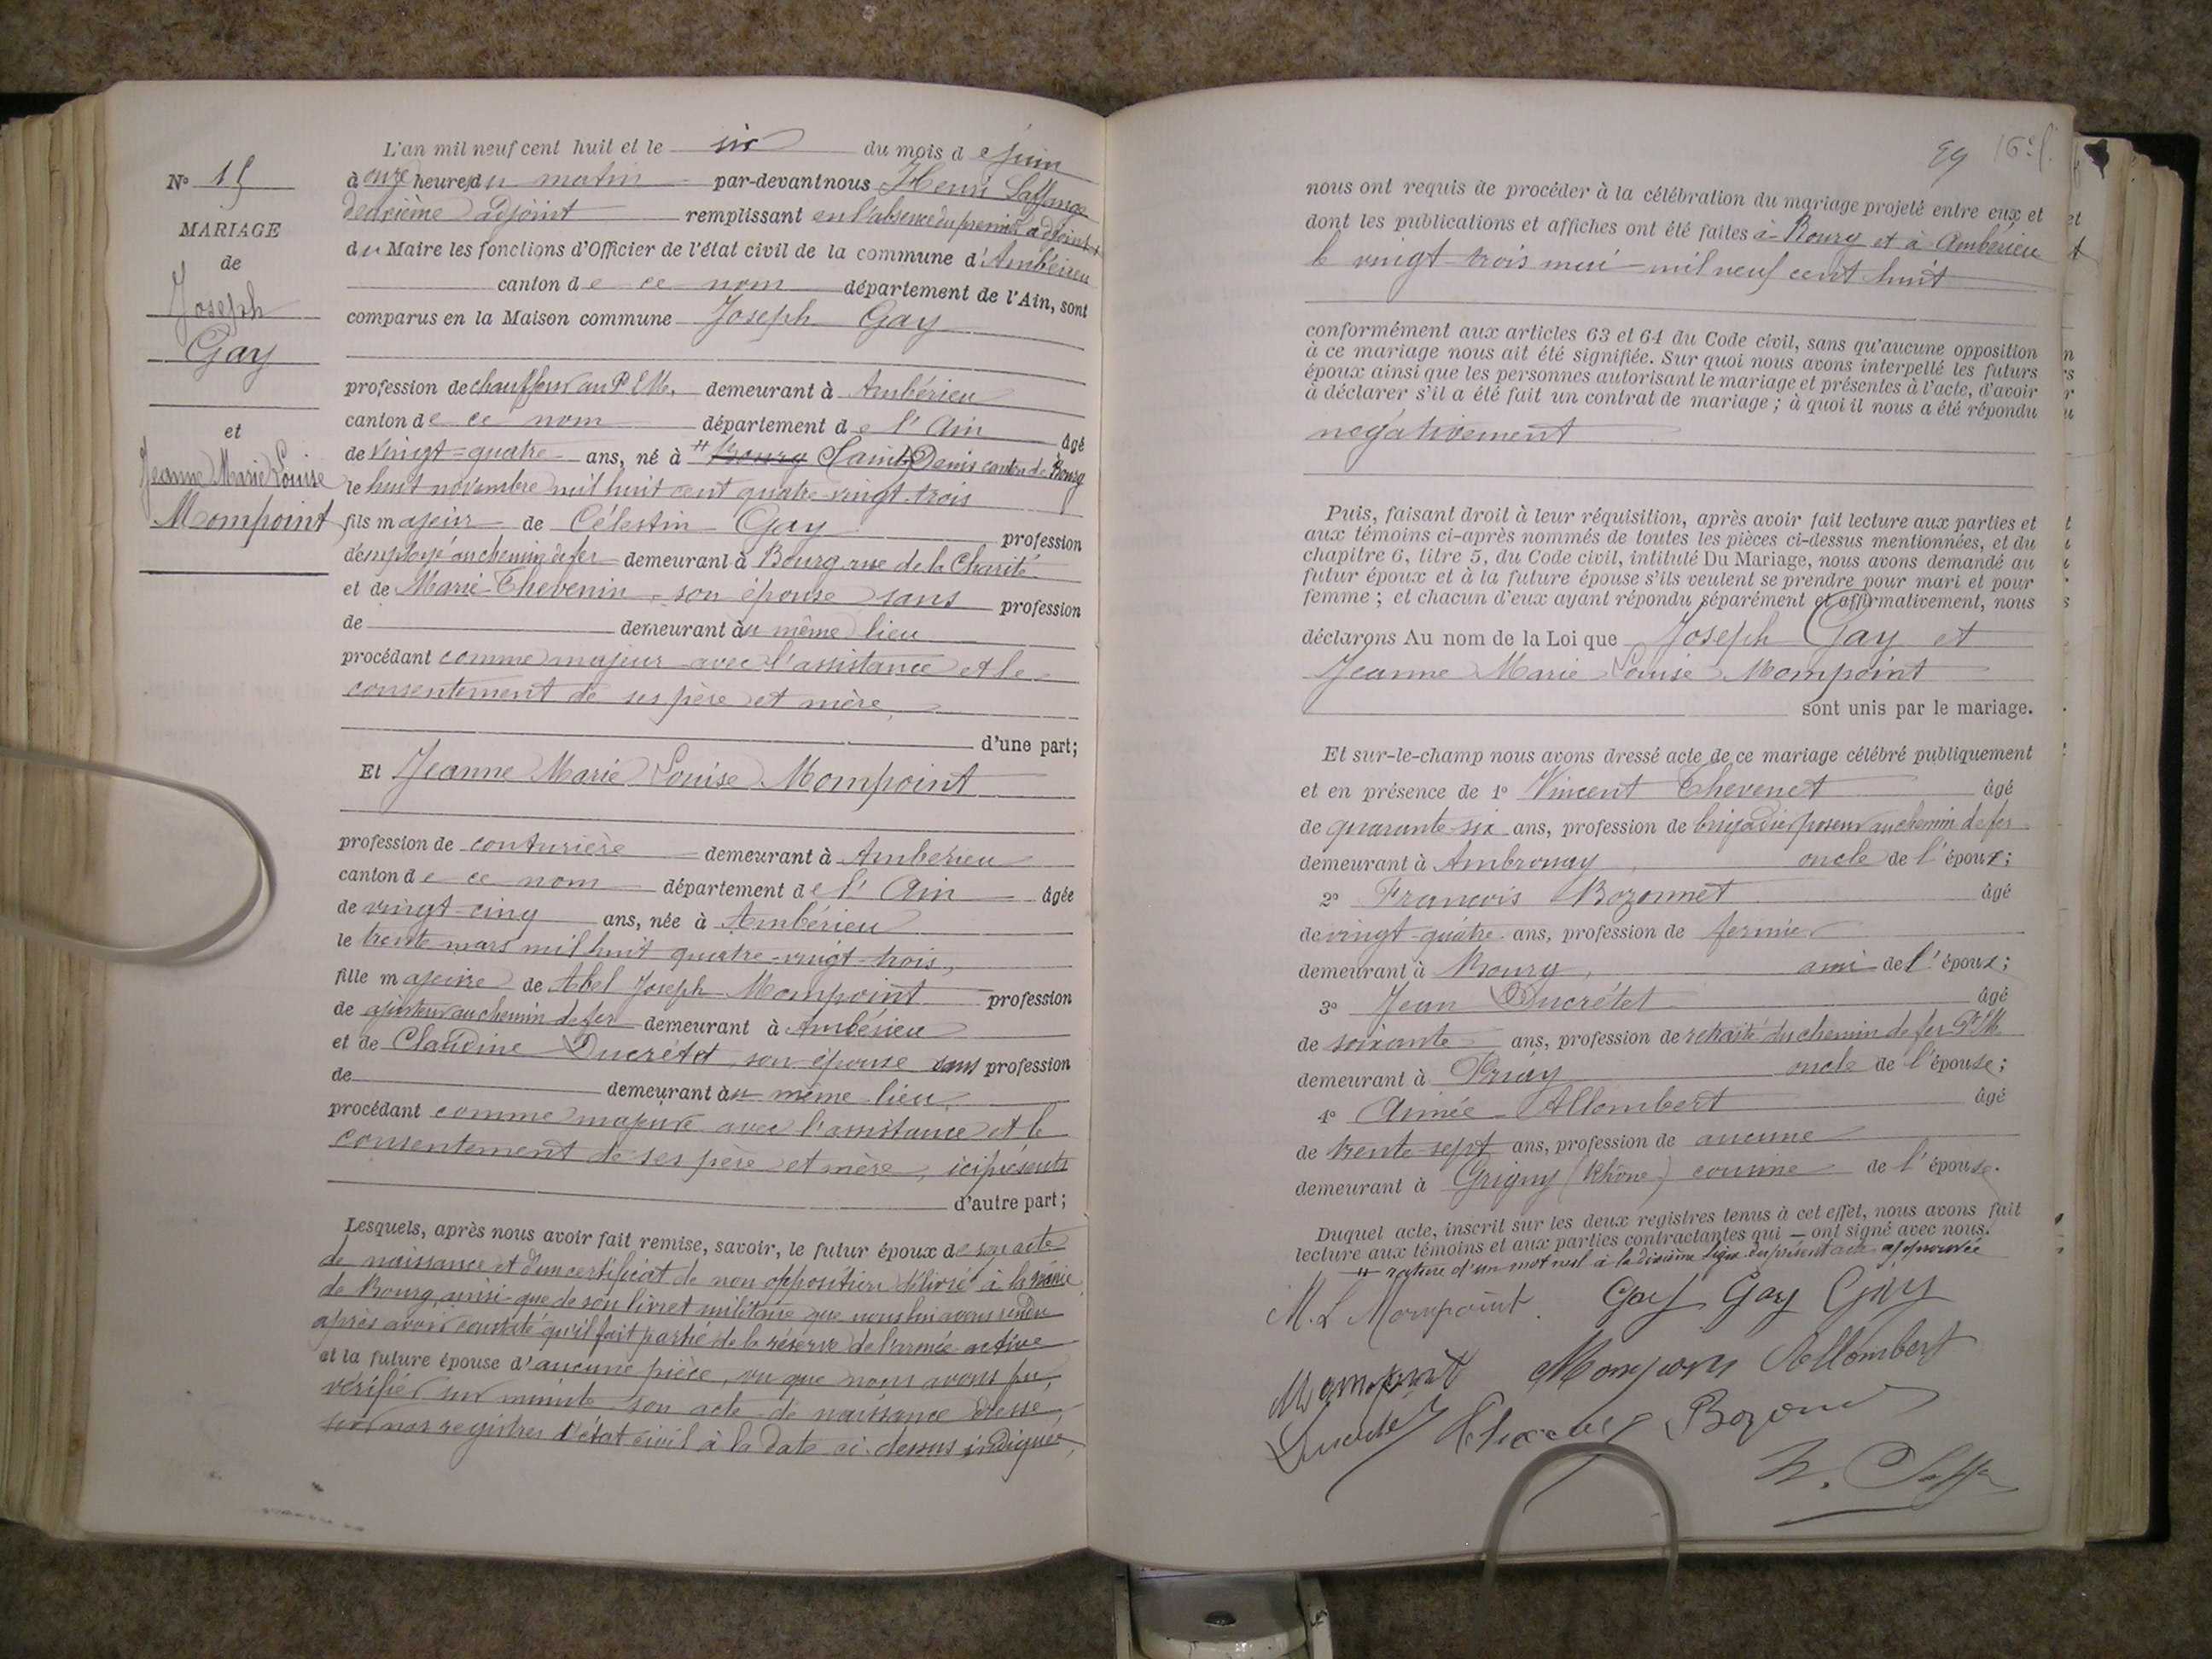 L'an mil neuf cent huit et le six du mois de juin
à onze heures du matin par-devant nous Henri Laffange
deuxième adjoint remplissant en l'absence du premier adjoint et
du Maire les fonctions d'Officier de l'état civil de la commune d'Ambérieu
canton de ce nom département de l'Ain, sont
comparus en la Maison commune Joseph Gay
profession de chauffeur au P.L.M. demeurant à Ambérieu
canton de ce nom département de l'Ain âgé
de vingt-quatre ans, né à # Bourg Saint Denis canton de Bourg
le huit novembre mil huit cent quatre-vingt-trois
fils majeur de Célestin Gay profession
d'employé au chemin de fer demeurant à Bourg rue de la Charité
et de Marie Thevenin, son épouse sans profession
de demeurant au même lieu
procédant comme majeur avec l'assistance et le
consentement de ses père et mère
d'une part;
Et Jeanne Marie Louise Mompoint
profession de couturière demeurant à Ambérieu
canton de ce nom département de l'Ain âgée
de vingt-cinq ans, née à Ambérieu
le trente mars mil huit quatre-vingt-trois,
fille majeure de Abel Joseph Mompoint profession
de ajusteur au chemin de fer demeurant à Ambérieu
et de Claudine Ducrétet, son épouse sans profession
de demeurant au même lieu
procédant comme majeure avec l'assistance et le
consentement de ses père et mère, ici présents
d'autre part;
Lesquels, après nous avoir fait remise, savoir, le futur époux de son acte
de naissance et d'un certificat de non opposition délivré à la mairie
de Bourg, ainsi que de son livret militaire que nous lui avons rendu
après avoir constaté qu'il fait partie de la réserve de l'armée active
et la future épouse d'aucune pièce, vu que nous avons pu,
vérifier sur minute son acte de naissance dressé
sur nos registres d'état civil à la date ci-dessus indiquée,
No 15
MARIAGE
de
Joseph
Gay
et
Jeanne Marie Louise
Mompoint
89 16e f.
nous ont requis de procéder à la célébration du mariage projeté entre eux et
dont les publications et affiches ont été faites à Bourg et à Ambérieu
le vingt-trois mai mil neuf cent huit
conformément aux articles 63 et 64 du Code civil, sans qu'aucune opposition
à ce mariage nous ait été signifiée. Sur quoi nous avons interpellé les futurs
époux ainsi que les personnes autorisant le mariage et présentes à l'acte, d'avoir
à déclarer s'il a été fait un contrat de mariage; à quoi il nous a été répondu
négativement
Puis, faisant droit à leur réquisition, après avoir fait lecture aux parties et
aux témoins ci-après nommés de toutes les pièces ci-dessus mentionnées, et du
chapitre 6, titre 5, du Code civil, intitulé Du Mariage, nous avons demandé au
futur époux et à la future épouse s'ils veulent se prendre pour mari et pour
femme; et chacun d'eux ayant répondu séparément et affirmativement, nous
déclarons Au nom de la Loi que Joseph Gay et
Jeanne Marie Louise Mompoint
sont unis par le mariage.
Et sur-le-champ nous avons dressé acte de ce mariage célébré publiquement
et en présence de 1o Vincent Thevenet âgé
de quarante-six ans, profession de brigadier poseur au chemin de fer
demeurant à Ambronay oncle de l'époux;
2o François Bozonnet âgé
de vingt-quatre ans, profession de fermier
demeurant à Bourg, ami de l'époux;
3o Jean Ducrétet âgé
de soixante ans, profession de retraité du chemin de fer P.L.M.
demeurant à Priay oncle de l'épouse;
4o Aimée Allombert âgé
de trente-sept ans, profession de aucune
demeurant à Grigny (Rhône) cousine de l'épouse.
Duquel acte, inscrit sur les deux registres tenus à cet effet, nous avons fait
lecture aux témoins et aux parties contractantes qui — ont signé avec nous.
# rature d'un mot nul à la dixième ligne du présent acte approuvée
M. L Mompoint. Gay Gay Gay
Mompoint Mompoint Allombert
Ducrétet Bozonnet